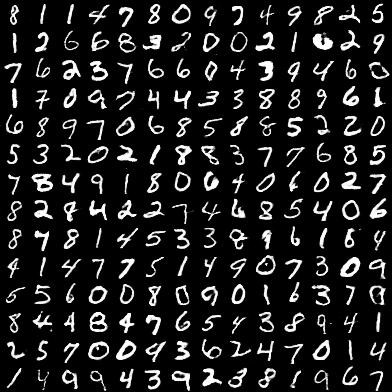 8 1 1 4 7 8 0 9 7 4 9 8 2 5
1 2 6 6 8 3 2 0 0 2 1 6 2 9
7 6 2 3 7 6 6 0 4 3 9 4 6 0
1 7 0 9 7 4 4 3 3 8 8 9 6 1
6 8 9 7 0 6 8 5 8 8 5 2 2 0
5 3 2 0 2 1 8 8 3 7 7 6 8 5
7 8 4 9 1 8 0 6 4 0 6 0 2 7
8 2 8 4 2 2 7 4 6 8 5 4 0 6
8 7 8 1 4 5 3 3 8 9 6 1 6 4
4 1 4 7 7 5 1 4 9 0 7 3 0 9
5 5 6 0 0 8 0 9 0 1 6 3 7 0
8 4 4 8 4 7 6 5 4 3 8 9 4 1
2 5 7 0 0 9 3 6 2 4 7 0 1 4
1 4 9 9 4 3 9 2 3 8 1 9 6 7